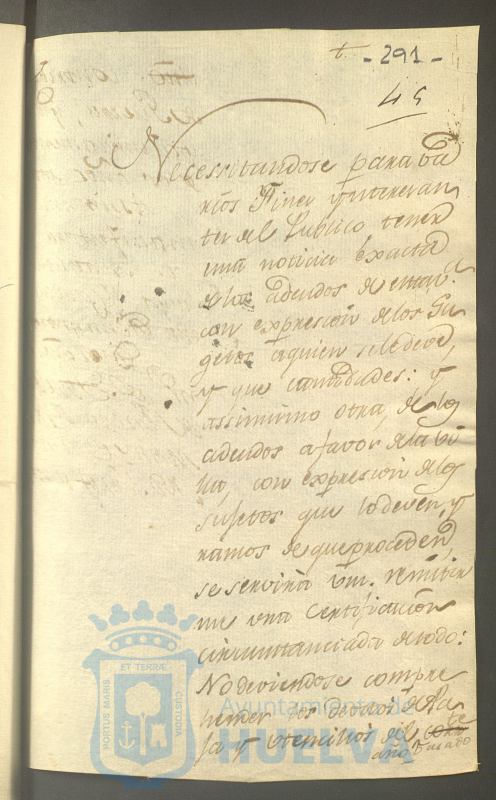 t - 291 -
45
Necessitandose para va
rios Fines ynteresan
tes del Publico tener
una noticia exacta
de los adeudos de esta v.ª
con expresion de los Su
getos aquien se le deve,
y que cantidades: y
assimismo otra, de los
adeudos afavor de la vi
lla, con expresion de los
sujetos que lo deven, y
ramos de que proceden
se servirà vm. remitir
me una Certificacion
circunstanciada de todo:
No deviendose compre
hender los devitos de Pa
ja y Utensilios del
año Pasado
ET TERRÆ
PORTUS MARIS
CUSTODIA
Ayuntamiento de
HUELVA